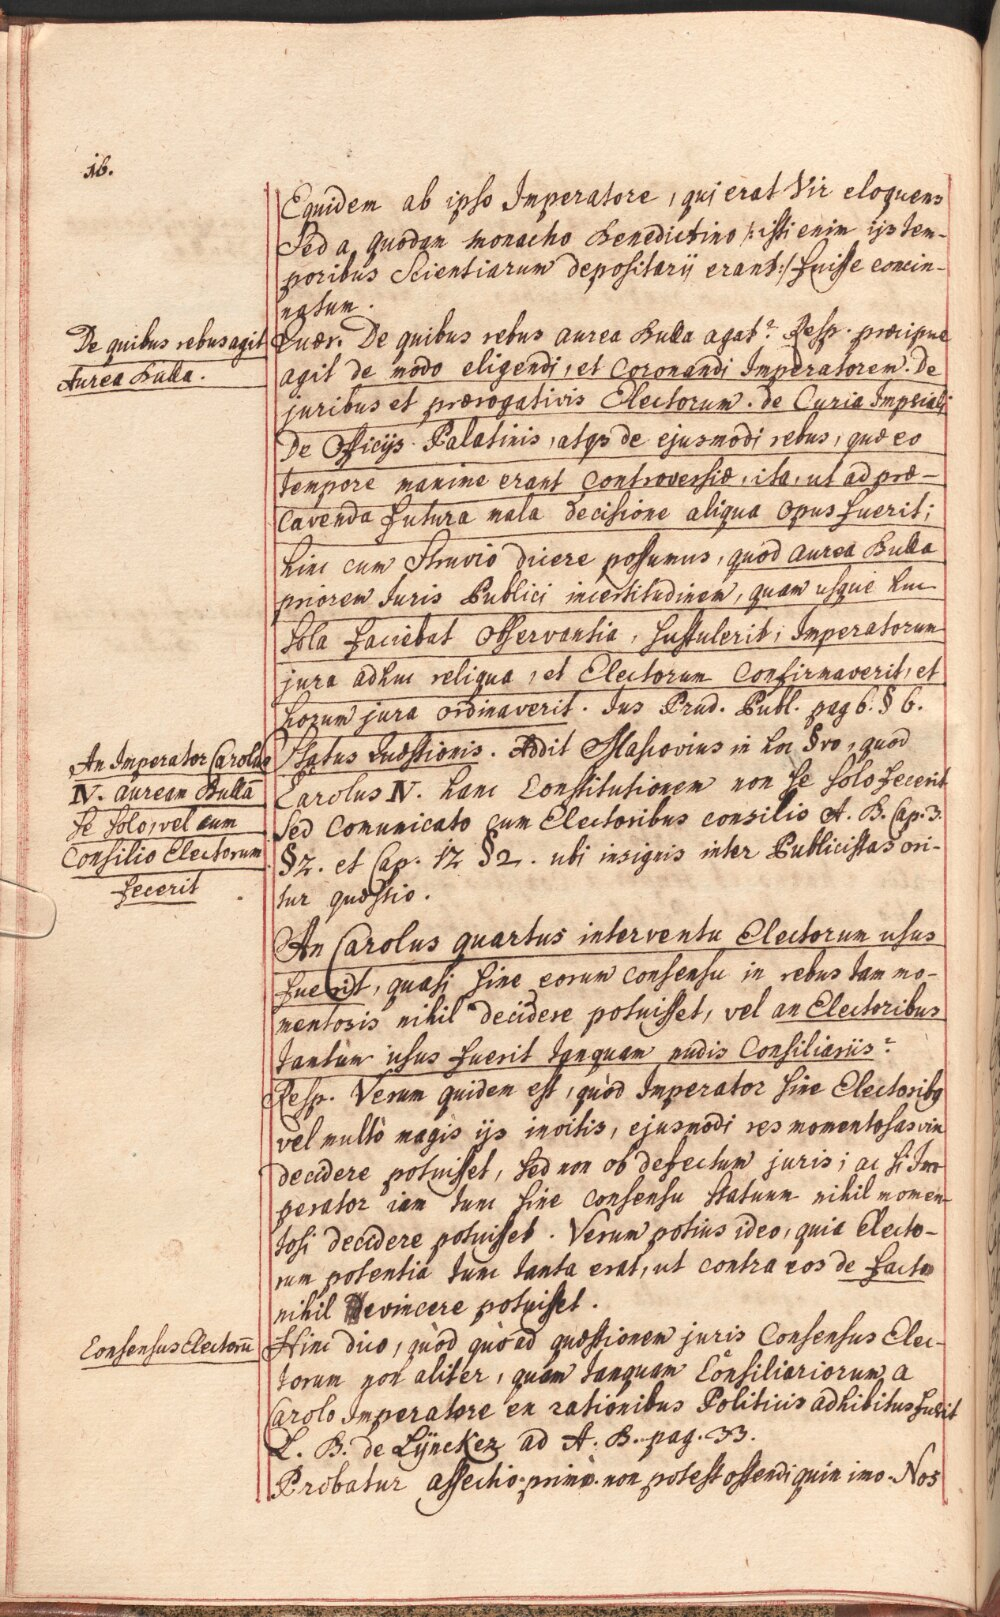 16.
Equidem ab ipso Imperatore, qui erat Vir eloquens
Sed a quodam monacho Benedictino /: isti enim ijs tem-
poribus Scientiarum depositarij erant :/ fuisse concin-
natum.
De quibus rebus agit
Aurea Bulla.
Quær. De quibus rebus aurea Bulla agat? Resp. præcipue
agit de modo eligendi, et coronandi Imperatorem. De
juribus et prærogativis Electorum. de Curia Impeiali
De Officijs Palatinis, atqs de ejusmodi rebus, quæ eo
tempore maxime erant controversiæ, ita, ut ad præ-
cavenda futura mala decisione aliqua opus fuerit;
hinc cum Struvio dicere possumus, quod aurea Bulla
priorem Juris Publici incertitudinem, quam usque huc
sola faciebat observantia, sustulerit; Imperatorum
jura adhuc reliqua, et Electorum confirmaverit, et
horum jura ordinaverit. Jus Prud. Publ. pag 6. § 6.
An Imperator Carolus
IV. auream Bullã
se solo, vel cum
Consilio Electorum
fecerit
Status Quæstionis. Addit Mascovius in hoc §vo, quod
Carolus IV. hanc Constitutionem non se solo fecerit
Sed Comunicato cum Electoribus consilio A. B. Cap. 3.
§ 2. et Cap. 12 § 2. ubi insignis inter Publicistas ori-
tur quæstio.
An Carolus quartus interventu Electorum usus
fuerit, quasi sine eorum consensu in rebus tam mo-
mentosis nihil decidere potuisset, vel an Electoribus
tantùm usus fuerit tanquam nudis Consiliariis?
Resp. Verum quidem est, quòd Imperator sine Electoribq
vel multò magis ijs invitis, ejusmodi res momentosas vix
decidere potuisset, sed non ob defectum juris; ac si Im-
perator iam tum sine consensu statuum nihil momen-
tosi decidere potuisset. Verum potius ideo, quia Electo-
rum potentia tunc tanta erat, ut contra eos de facto
nihil devincere potuisset.
Consensus Electorũ
Hinc dico, quòd quò ad quæstionem juris Consensus Elec-
torum non aliter, quàm tanquam Consiliariorum a
Carolo Imperatore ex rationibus Politicis adhibitus fuerit
L. B. de Lÿncker ad A. B. pag. 33.
Probatur assertio primò. non potest ostendi quin imo Nos